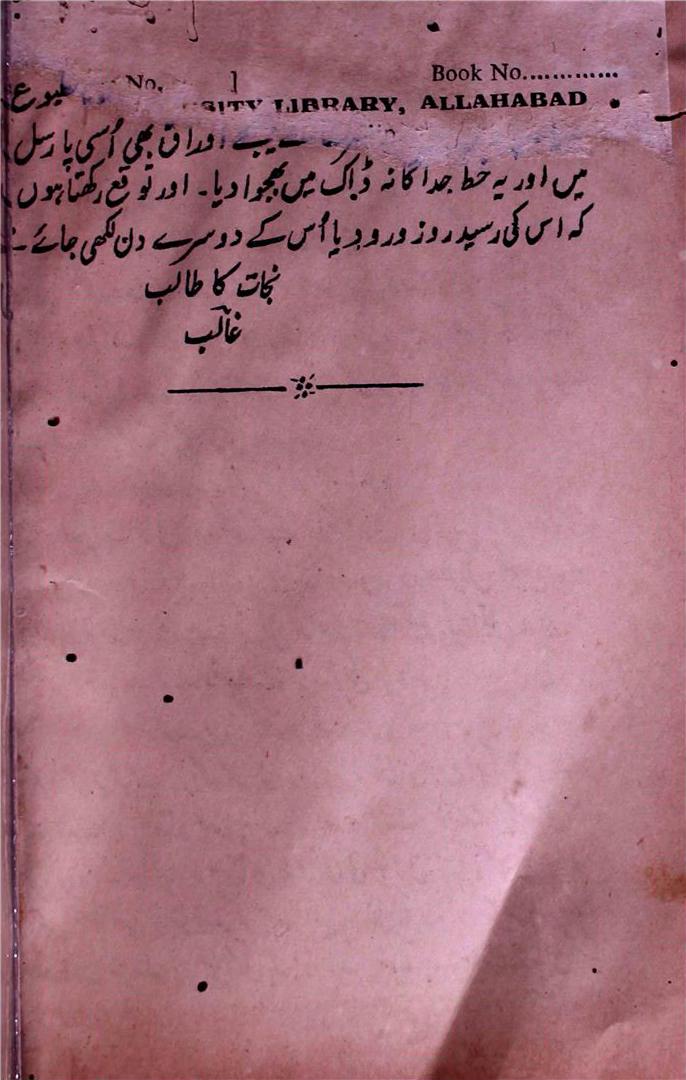 No. 1 Book No.............
SITY LIBRARY, ALLAHABAD
اوراق بھی اُسی پارسل
میں اور یہ خط جداگانہ ڈاک میں بھجوا دیا۔ اور توقع رکھتا ہوں
کہ اس کی رسید روز ورود یا اُس کے دوسرے دن لکھی جائے۔
نجات کا طالب
غالب